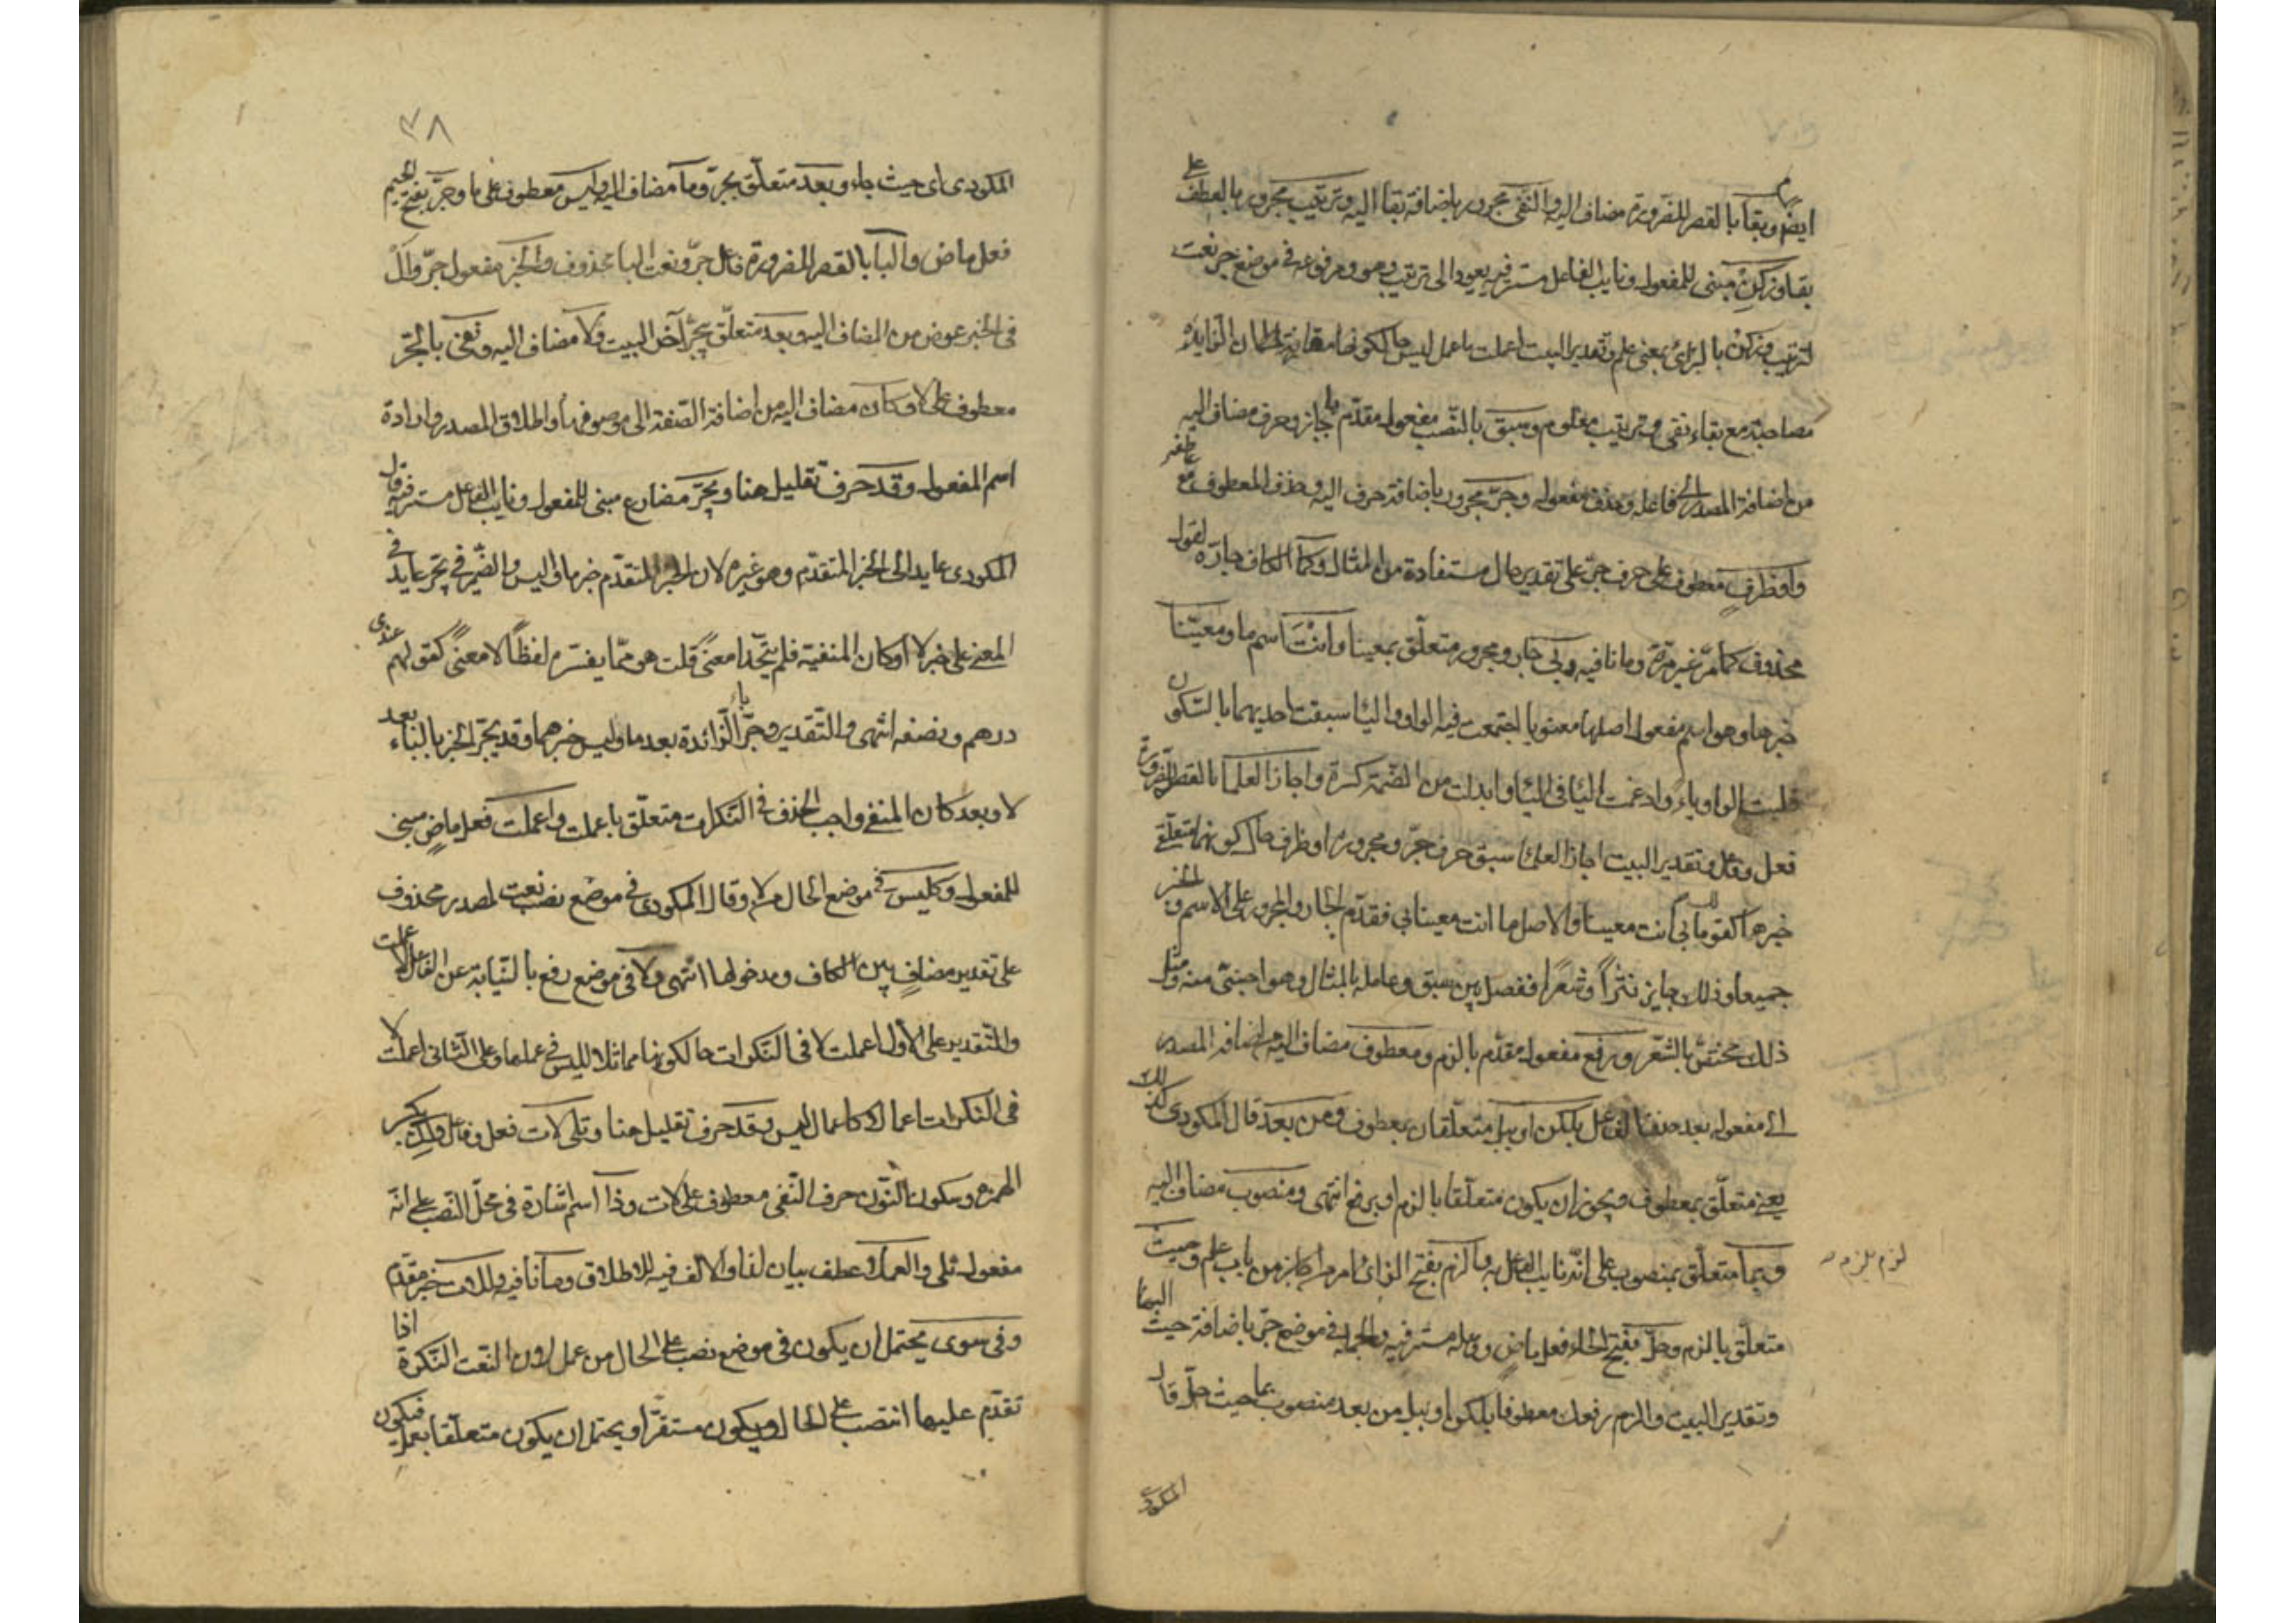 ايضا وبقا بالقصر للضرورة مضاف اليه والنفى مجرور باضافة بقا اليه وترتيب مجرور بالعطف على
بقا وزكن مبنى للمفعول ونايب الفاعل مستتر فيه يعود الى ترتيب وهو ومرفوعه فى موضع جر نعت
لترتيب وزكن بالزاى بمعنى علم وتقدير البيت اعملت ما عمل ليس حال كونها مقارنة لفقدان ان الزايدة
مصاحبة مع بقاء نفى وترتيب معلوم وسبق بالنصب مفعول مقدم باجاز وحرف مضاف اليه
من اضافة المصدر الى فاعله وحذف مفعوله وجر مجرور باضافة حرف اليه وحذف المعطوف مع عاطفه
واو ظرف معطوف على حرف جر على تقدير حال مستفادة من المثال وكما الكاف جارة لقول
محذوف كما مر غير مرة وما نافيه وبى جار ومجرور متعلق بمعينا وانت اسم ما ومعينا
خبرها وهو اسم مفعول اصلها معنويا اجتمعت فيه الواو واليا سبقت احديهما بالسكون
قلبت الواو ياء وادغمت اليا فى اليا وابدلت من الضمة كسرة واجاز العلما بالقصر للضرورة
فعل وفاعل وتقدير البيت اجاز العلما سبق حرف جر ومجروره او ظرف حال كونهما متعلقى
خبرها كقولك ما بى انت معينا والاصل ما انت معينا بى فقدم الجار والمجرور على الاسم والخبر
جميعا وذلك جايز نثرا وشعرا ففصل بين سبق وعامله بالمثال وهو اجنبى منه ومثل
ذلك مختص بالشعر ورفع مفعول مقدم بالزم ومعطوف مضاف اليه من اضافة المصدر
الى مفعوله بعد حذف الفاعل بلكن او ببل متعلقان بمعطوف ومن بعد قال المكودى كذلك
يعنى متعلق بمعطوف ويجوز ان يكون متعلقا بالزم او برفع انتهى ومنصوب مضاف اليه
وبما متعلق بمنصوب على انه نايب الفاعل به والزم بفتح الزاى امر من لزم من باب علم وحيث
متعلق بالزم وحل بفتح الحاء فعل ماض وفاعله مستتر فيه والجملة فى موضع جر باضافة حيث اليها
وتقدير البيت والزم رفعك معطوفا بلكن او ببل من بعد منصوب بما حيث حل قال
المكودى
لزم يلزم
٧٨
المكودى اى حيث جاء وبعد متعلق بجر وما مضاف اليه وليس معطوف على ما وجر بفتح الجيم
فعل ماض والبا بالقصر للضرورة فاعل جر ونعت البا محذوف والخبر مفعول جر وال
فى الخبر عوض من المضاف اليه وبعد متعلق بيجر آخر البيت ولا مضاف اليه ونفى بالجر
معطوف على لا وكان مضاف اليه من اضافة الصفة الى موصوفها واطلاق المصدر وارادة
اسم المفعول وقد حرف تقليل هنا ويجر مضارع مبنى للمفعول ونايب الفاعل مستتر فيه قال
المكودى عايد الى الخبر المتقدم وهو غيره لان الخبر المتقدم خبر ما وليس والضمير فى يجر عايد فى
المعنى على خبر لا او كان المنفية فلم يتحدا معنى قلت هو مما يفسره لفظا لا معنى كقولهم عندى
درهم ونصفه انتهى والتقدير وجر البا الزائدة بعد ما وليس خبرهما وقد يجر الخبر بالباء بعد
لا وبعد كان المنفى واجب الحذف فى النكرات متعلق باعملت واعملت فعل ماض مبنى
للمفعول وكليس فى موضع الحال من لا وقال المكودى فى موضع نصب نعت لمصدر محذوف
على تقدير مضاف بين الكاف ومدخولها انتهى ولا فى موضع رفع بالنيابة عن الفاعل لاعملت
والتقدير على الاول اعملت لا فى النكرات حال كونها مماثلا لليس فى عملها وعلى الثانى اعملت لا
فى النكرات اعمالا كاعمال ليس وقد حرف تقليل هنا وتلى لات فعل وفاعل وان بكسر
الهمزة وسكون النون حرف النفى معطوف على لات وذا اسم اشارة فى محل النصب على انه
مفعول تلى والعملا عطف بيان لذا والالف فيه للاطلاق وما نافيه وللات خبر مقدم
وفى سوى يحتمل ان يكون فى موضع نصب على الحال من عمل لان النعت النكرة اذا
تقدم عليها انتصب على الحال ويكون مستقرا ويحتمل ان يكون متعلقا بعمل فيكون